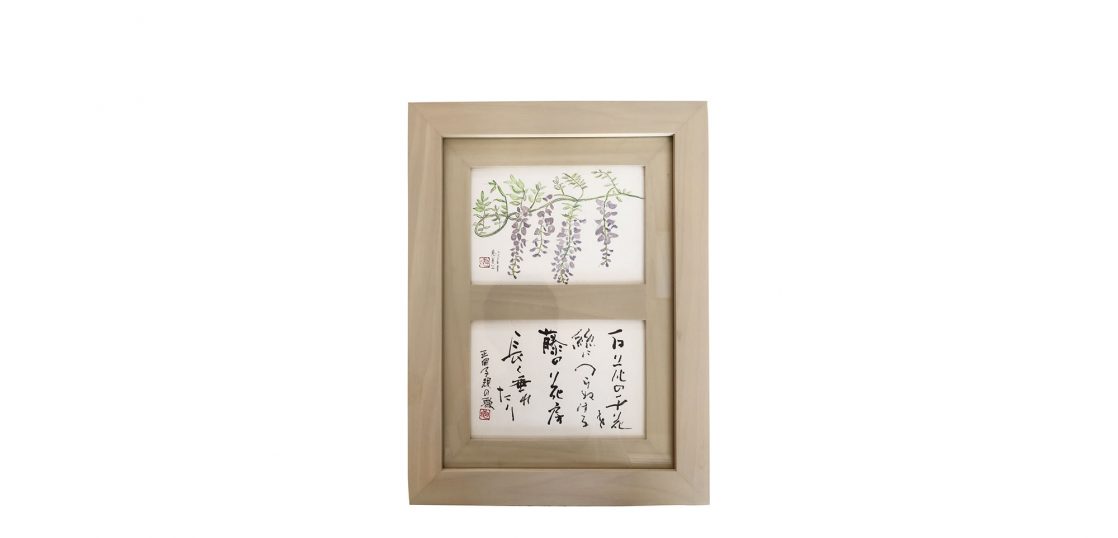 百花の千花を
絲につらぬける
藤の花房
長く垂れ
たり
正岡子規の歌